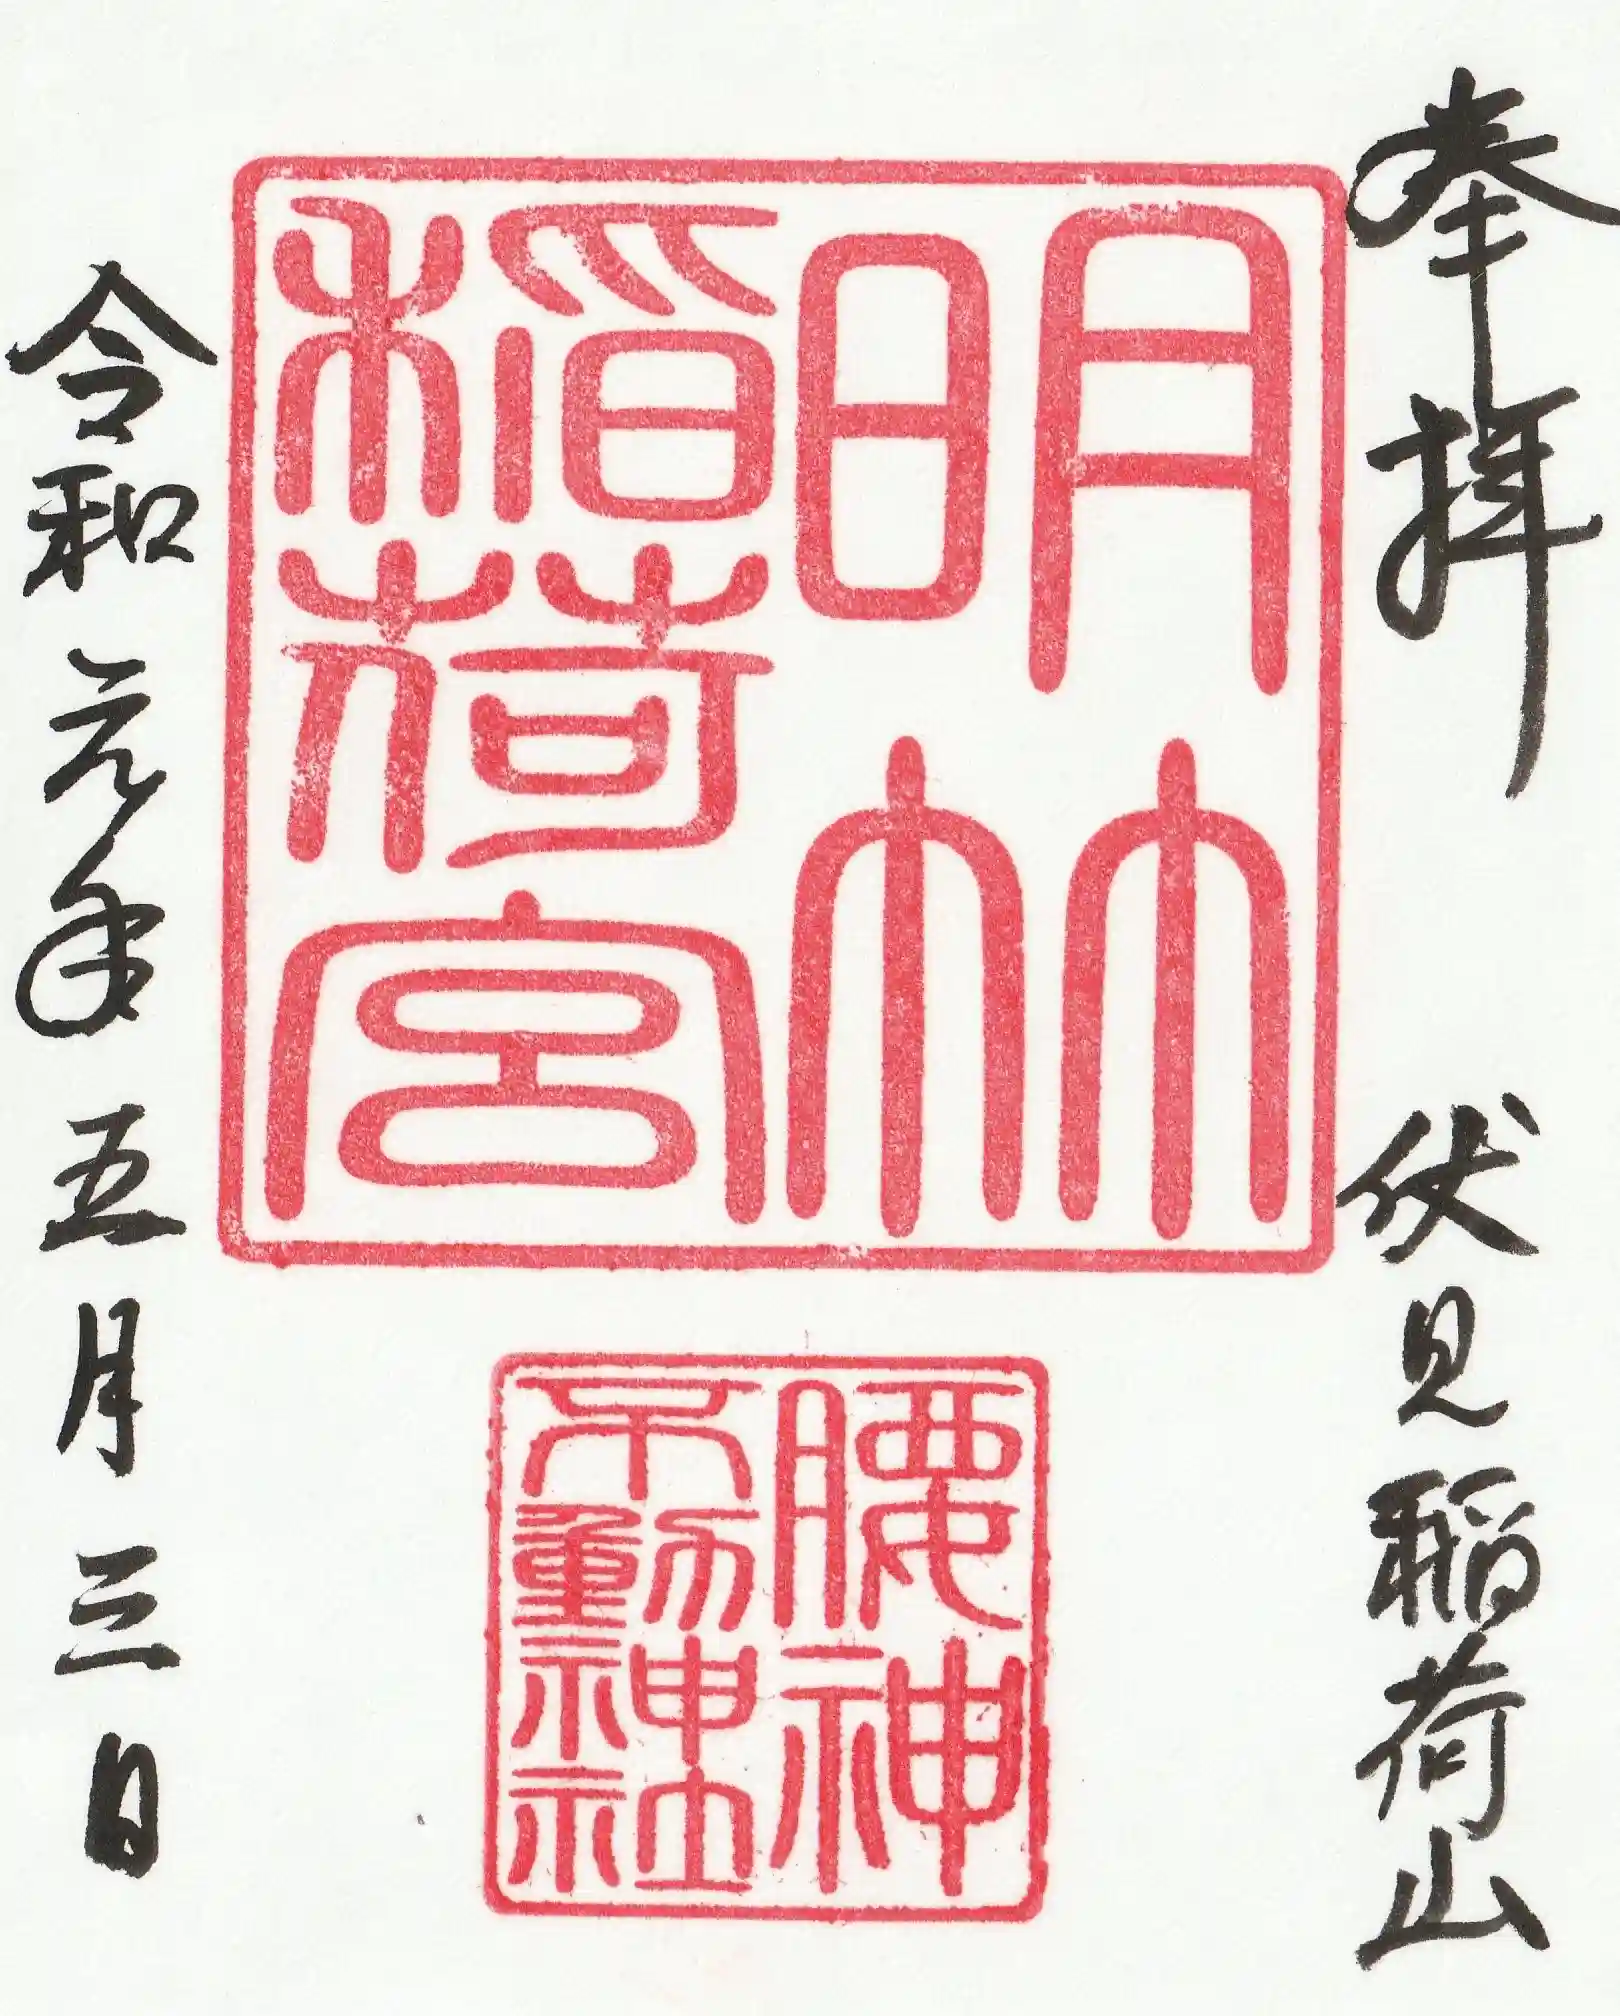 奉拝 伏見稲荷山
明竹
稲荷宮
腰神
不動神社
令和元年五月三日